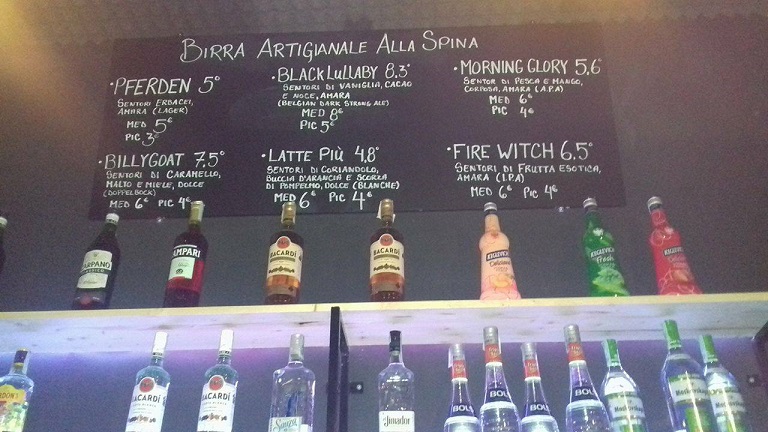 BIRRA ARTIGIANALE ALLA SPINA
• PFERDEN 5°
SENTORI ERBACEI,
AMARA (LAGER)
MED 5€
PIC 3€
• BLACK LULLABY 8.3°
SENTORI DI VANIGLIA, CACAO
E NOCE, AMARA
(BELGIAN DARK STRONG ALE)
MED 8€
PIC 5€
• MORNING GLORY 5,6°
SENTOR DI PESCA E MANGO,
CORPOSA, AMARA (A.P.A)
MED 6€
PIC 4€
• BILLYGOAT 7,5°
SENTORI DI CARAMELLO,
MALTO E MIELE, DOLCE
(DOPPELBOCK)
MED 6€ PIC 4€
• LATTE PIÙ 4,8°
SENTORI DI CORIANDOLO,
BUCCIA D'ARANCIA E SCORZA
DI POMPELMO, DOLCE (BLANCHE)
MED 6€ PIC 4€
• FIRE WITCH 6,5°
SENTORI DI FRUTTA ESOTICA,
AMARA (I.P.A)
MED 6€ PIC 4€
CARPANO
CAMPARI
BACARDÍ
BACARDÍ
KEGLEVICH
KEGLEVICH
Fresh
KEGLEVICH
GORDON'S
BACARDÍ
BACARDÍ
Sauza
el Jimador
BOLS
BOLS
BOLS
BOLS
Moskovskaya
Moskovskaya